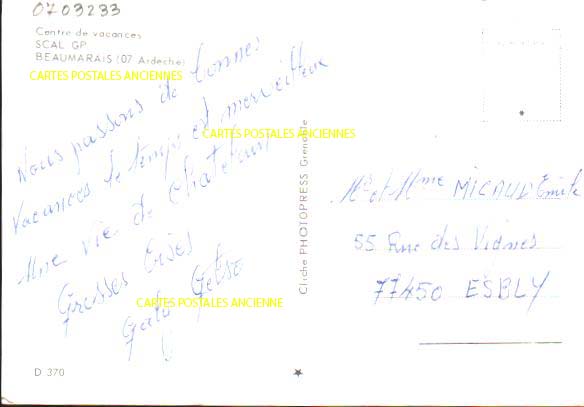 0703233
Centre de vacances
SCAL GP
BEAUMARAIS (07 Ardèche)
CARTES POSTALES ANCIENNES
Nous passons de bonnes
vacances le temps est merveilleux
CARTES POSTALES ANCIENNES
Une vie de chateau
Grosses bises
CARTES POSTALES ANCIENNE
Cliché PHOTOPRESS Grenoble
Mr et Mme MICAUD Emile
55 Rue des Vignes
77450 ESBLY
D 370